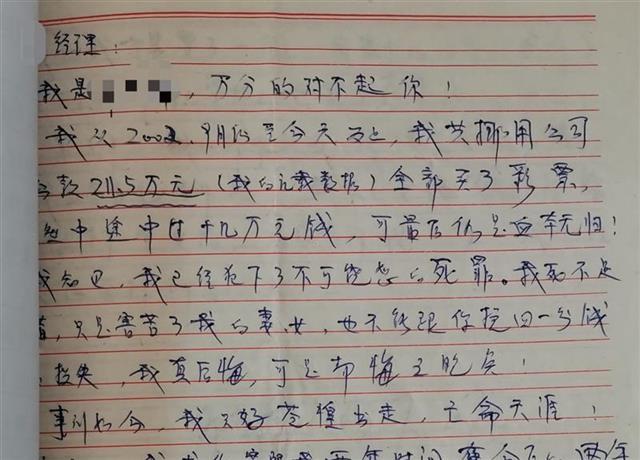 经理：
我是 ，万分的对不起你！
我从2002.9月份至今天为止，我共挪用公司
公款211.5万元（我的记载数据）全部买了彩票，
中途中过十几万元钱，可最后仍是血本无归！
我知道，我已经犯下了不可饶恕的死罪。我死不足
惜，只是害苦了我的妻女，也不能跟你挽回一分钱
损失，我真后悔，可是却悔之晚矣！
事到如今，我只好苍惶出走，亡命天涯！
两年时间 两年